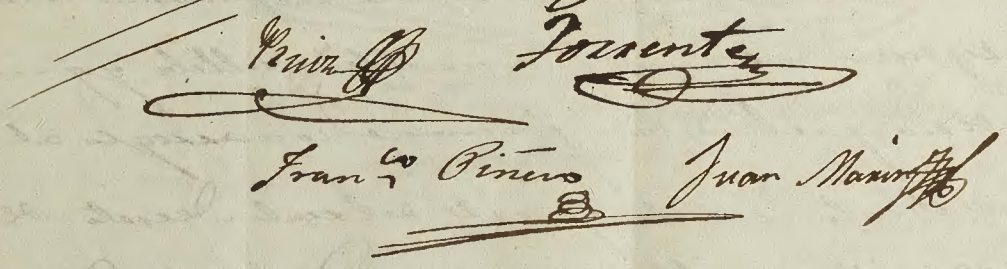 Torrente
Fran.co Piñero Juan Marin